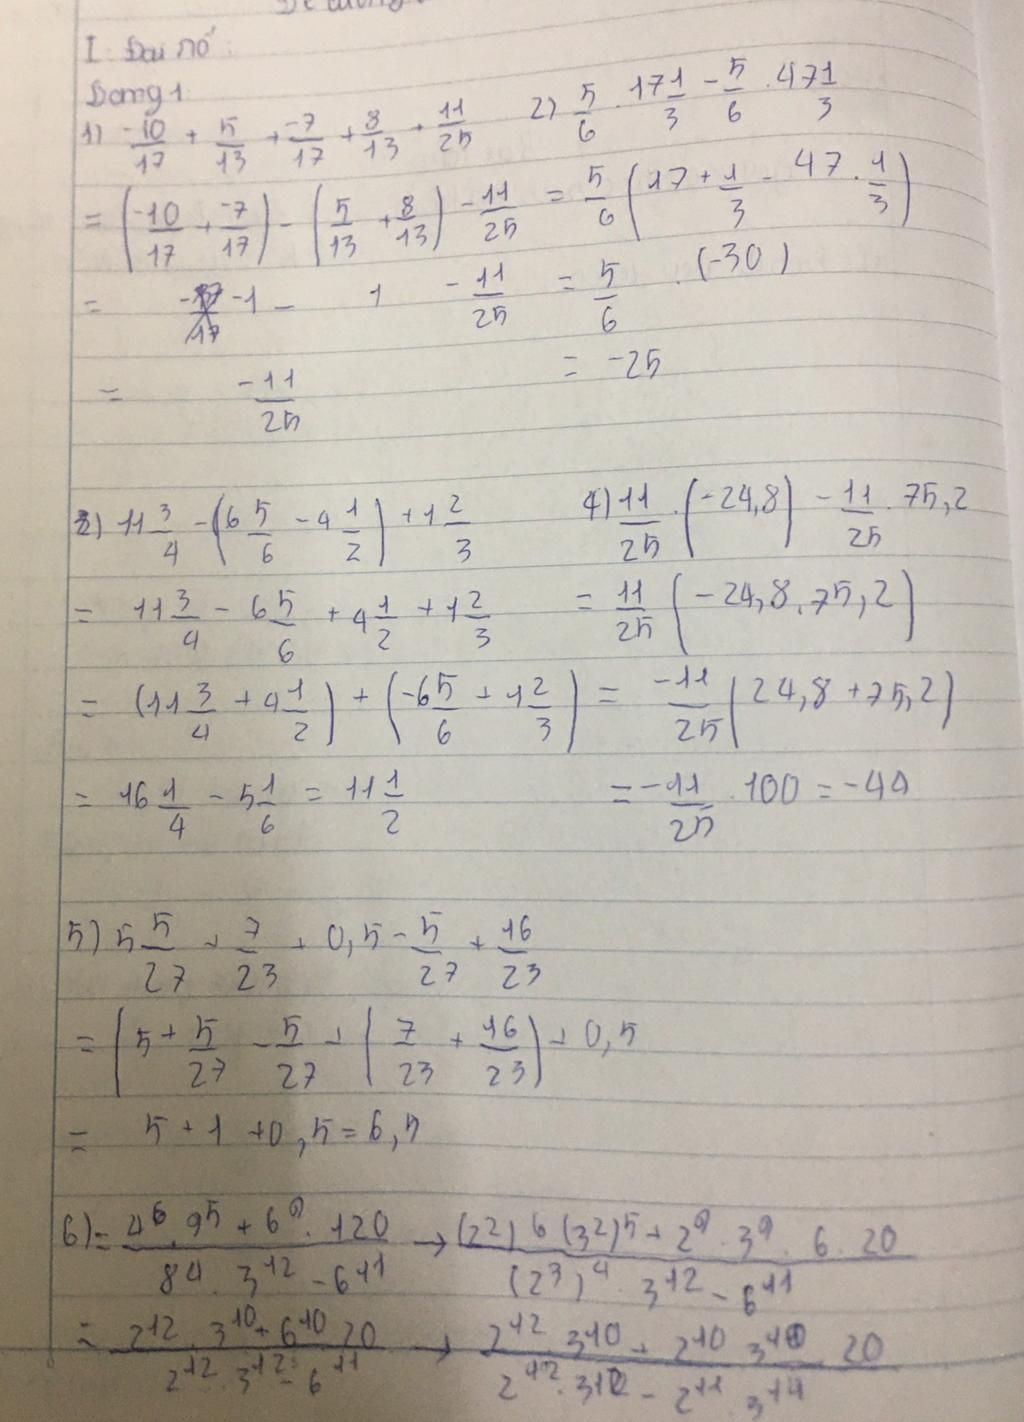 I. Đại số:
Dạng 1:
1) -10/17 + 5/13 + -7/17 + 8/13 + 11/25
= (-10/17 + -7/17) - (5/13 + 8/13) - 11/25
= -1 - 1 - 11/25
= -11/25
2) 5/6 . 17 1/3 - 5/6 . 47 1/3
= 5/6 (17 + 1/3 - 47 . 1/3)
= 5/6 . (-30)
= -25
3) 11 3/4 - (6 5/6 - 4 1/2) + 1 2/3
= 11 3/4 - 6 5/6 + 4 1/2 + 1 2/3
= (11 3/4 + 4 1/2) + (-6 5/6 + 1 2/3)
= 16 1/4 - 5 1/6 = 11 1/2
4) 11/25 . (-24,8) - 11/25 . 75,2
= 11/25 (-24,8 . 75,2)
= -11/25 (24,8 + 75,2)
= -11/25 . 100 = -44
5) 5 5/27 + 7/23 + 0,5 - 5/27 + 16/23
= (5 + 5/27 - 5/27 + (7/23 + 16/23) + 0,5
= 5 + 1 + 0,5 = 6,5
6) = 4^6 . 9^5 + 6^9 . 120 / 8^4 . 3^12 - 6^11 → (2^2)^6 (3^2)^5 + 2^9 . 3^9 . 6 . 20 / (2^3)^4 . 3^12 - 6^11
= 2^12 . 3^10 + 6^10 20 / 2^12 . 3^12 - 6^11 → 2^12 . 3^10 + 2^10 3^10 . 20 / 2^12 . 3^12 - 2^11 . 3^11